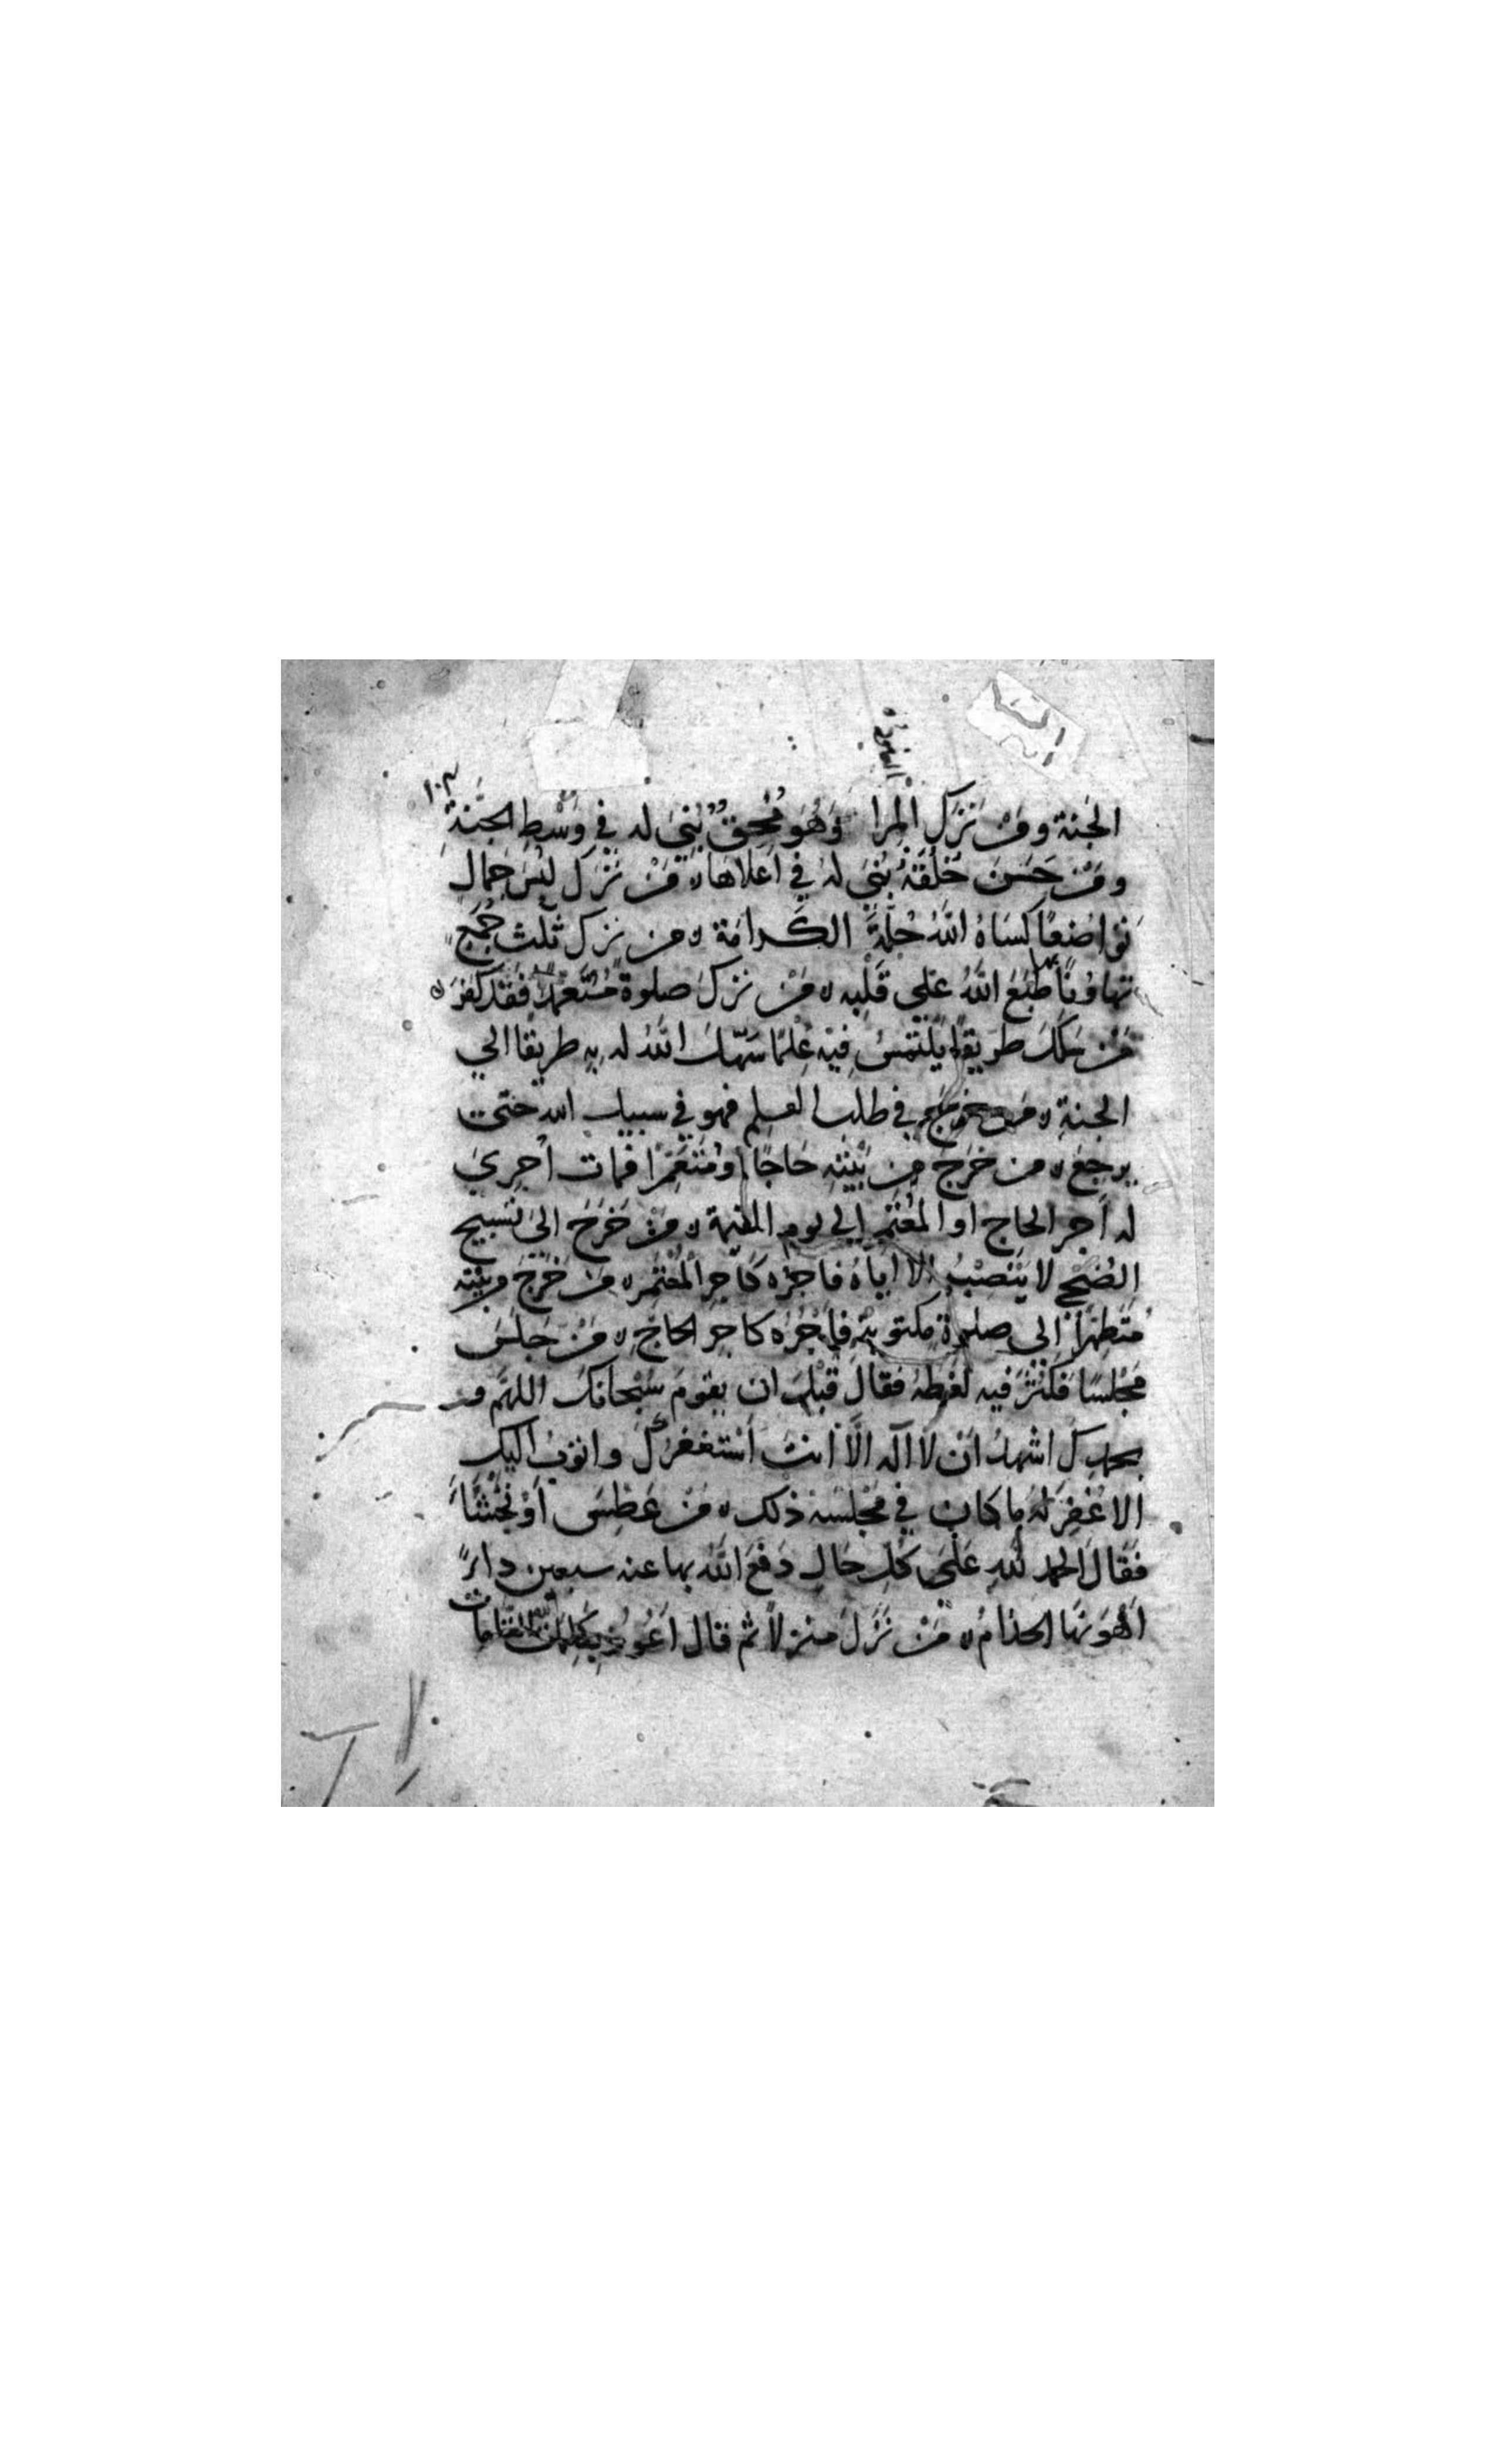 ١٠٢
الجَنة ومَنْ تَرَكَ المِرا وَهُوَ مُحِقٌّ بُنِيَ له فِي وَسْطِ الجَنّةِ
ومَنْ حَسَنَ خُلقَهُ بُنِيَ لهُ فِي اَعلاها مَنْ تَرَكَ لبْسَ جمالٍ
تواضعًا كسَاهُ اللهُ حُلّةَ الكَرامَة من ترك ثلث جُمَعٍ
تَهاوُنًا بها طَبَعَ اللهُ علي قَلبِه مَنْ ترك صلوة مُتَعَمِّدًا فقد كفَرَ
مَنْ سَلَكَ طَريقًا يَلتَمسُ فِيْهِ عِلمًا سَهّلَ اللهُ له به طريقًا الي
الجنةِ من خرج في طلب العلم فهو في سبيل الله حتى
يرجعَ من خَرَجَ مِن بَيْتِهِ حَاجًا او مُعْتَمِرًا فمات اُجرِيَ
له اَجر الحاج او المُعْتَمِر إلى يوم القيمة مَنْ خَرَجَ الىَ تَسبيح
الضُحْي لا يَنْصِبُهُ الا اياهُ فاجرُه كاَجرِ المُعْتَمِر مَن خَرَجَ من بيْتِهِ
مُتَطَهِّرًا الى صلوة مكتوبةٍ فاَجْرُه كاجرِ الحاجّ مَنْ جلسَ
مَجْلسًا فكثُرَ فيه لَغَطهُ فقالَ قَبْلَ ان يقومَ سُبْحانكَ اللهُمّ و
بحمدك اشهدُ اَنْ لا اله الّا انتَ اَسْتغفرك واتوبُ اليك
الا غُفِرَ لهُ ما كان في مَجْلِسه ذلك مَن عَطِسَ اَوْ تَجَشّأَ
فقالَ الحمد للهِ علَى كُلِّ حَالٍ دَفعَ اللهُ بها عنه سبعين داءً
اَهْوَنُها الجذامُ مَنْ نَزَلَ منزلاً ثم قال اَعُوذ بكلمات الله التامات